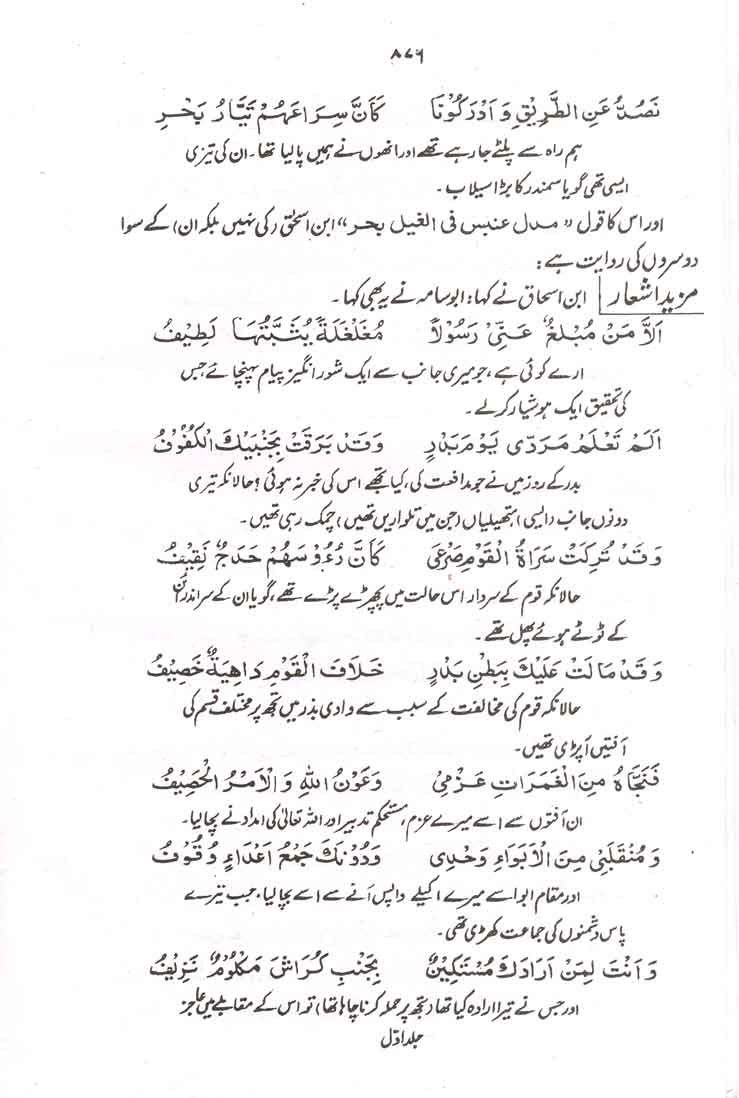 ۸۷۶
نَصُدُّ عَنِ الطَّرِيْقِ وَ اَدْرَكُوْنَا كَاَنَّ سِرَاعَهُمْ تَيَّارُ بَحْرِ
ہم راہ سے پلٹے جا رہے تھے اور انھوں نے ہمیں پا لیا تھا۔ ان کی تیزی
ایسی تھی گویا سمندر کا بڑا سیلاب۔
اور اس کا قول "مدل عنبس فی الغیل بحر" ابن اسحٰق (کی نہیں بلکہ ان) کے سوا
دوسروں کی روایت ہے:
مزید اشعار ابن اسحاق نے کہا: ابو سامہ نے یہ بھی کہا۔
اَلَا مَنْ مُبْلِغٌ عَنِّیْ رَسُوْلًا مُغَلْغَلَةً يُثَبِّتُهَا لَطِيْفُ
ارے کوئی ہے، جو میری جانب سے ایک شور انگیز پیام پہنچائے جس
کی تحقیق ایک ہوشیار کر لے۔
اَلَمْ تَعْلَمْ مَرَدِّی يَوْمَ بَدْرٍ وَقَدْ بَرَقَتْ بِجَنْبَيْكَ الْكُفُوْفُ
بدر کے روز میں نے جو مدافعت کی، کیا تجھے اس کی خبر نہ ہوئی؟ حالانکہ تیری
دونوں جانب (ایسی) ہتھیلیاں (جن میں تلواریں تھیں) چمک رہی تھیں۔
وَقَدْ تُرِكَتْ سَرَاةُ الْقَوْمِ صَرْعٰی كَاَنَّ رُءُوْسَهُمْ حَدَجٌ نَقِيْفُ
حالانکہ قوم کے سردار اس حالت میں پچھڑے پڑے تھے، گویا ان کے سر اندرائن
کے ٹوٹے ہوئے پھل تھے۔
وَقَدْ مَالَتْ عَلَيْكَ بِبَطْنِ بَدْرٍ خِلَافَ الْقَوْمِ دَاهِيَةٌ خَصِيْفُ
حالانکہ قوم کی مخالفت کے سبب سے وادی بدر میں تجھ پر مختلف قسم کی
آفتیں آ پڑی تھیں۔
فَنَجَّاهُ مِنَ الْغَمَرَاتِ عَزْمِیْ وَعَوْنُ اللهِ وَالْاَمْرُ الْحَصِيْفُ
ان آفتوں سے اسے میرے عزم، مستحکم تدبیر اور اللہ تعالیٰ کی امداد نے بچا لیا۔
وَمُنْقَلَبِیْ مِنَ الْاَبْوَاءِ وَحْدِی وَدُوْنَكَ جَمْعُ اَعْدَاءٍ وُقُوْفُ
اور مقام ابوا سے میرے اکیلے واپس آنے سے اسے بچا لیا، جب تیرے
پاس دشمنوں کی جماعت کھڑی تھی۔
وَاَنْتَ لِمَنْ اَرَادَكَ مُسْتَكِيْنٌ بِجَنْبِ كُرَاشَ مَكْلُوْمٌ نَزِيْفُ
اور جس نے تیرا ارادہ کیا تھا (تجھ پر حملہ کرنا چاہا تھا) تو اس کے مقابلے میں عاجز
جلد اوّل